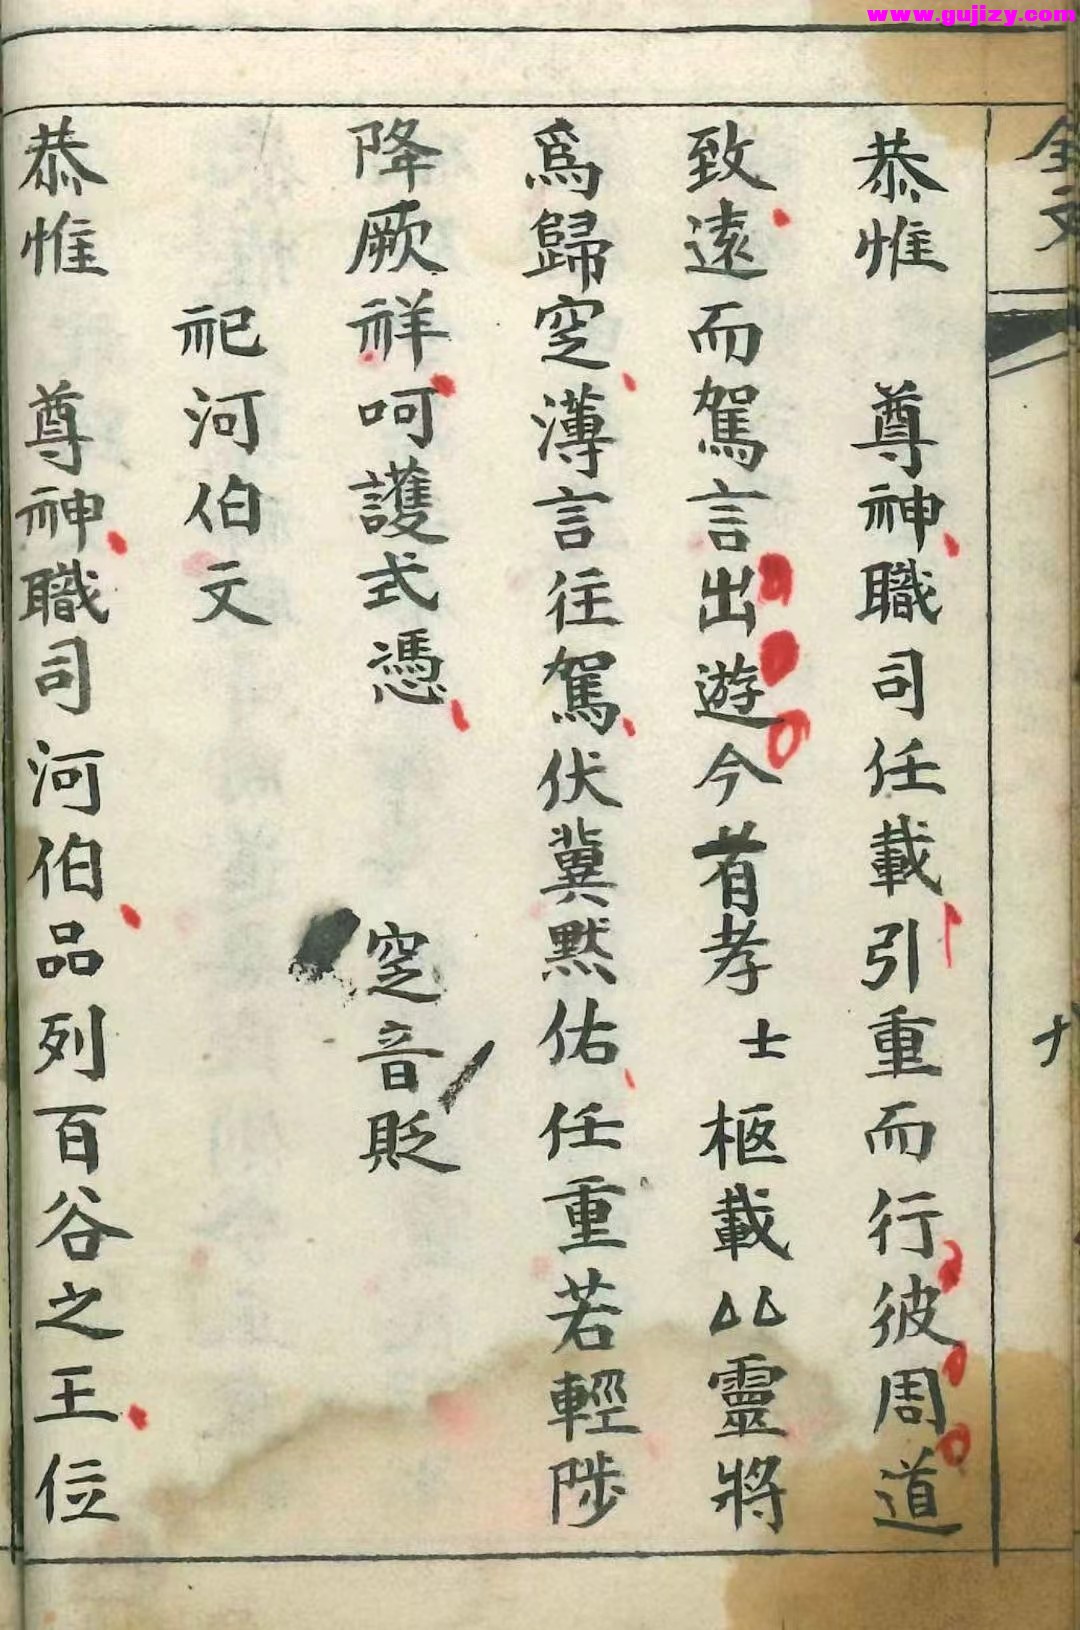 www.gujizy.com
恭惟　尊神職司任載引重而行彼周道
致遠而駕言出遊今有孝士柩載厶厶靈將
爲歸窆薄言往駕伏冀默佑任重若輕陟
降厥祥呵護式憑　窆音貶
祀河伯文
恭惟　尊神職司河伯品列百谷之王位